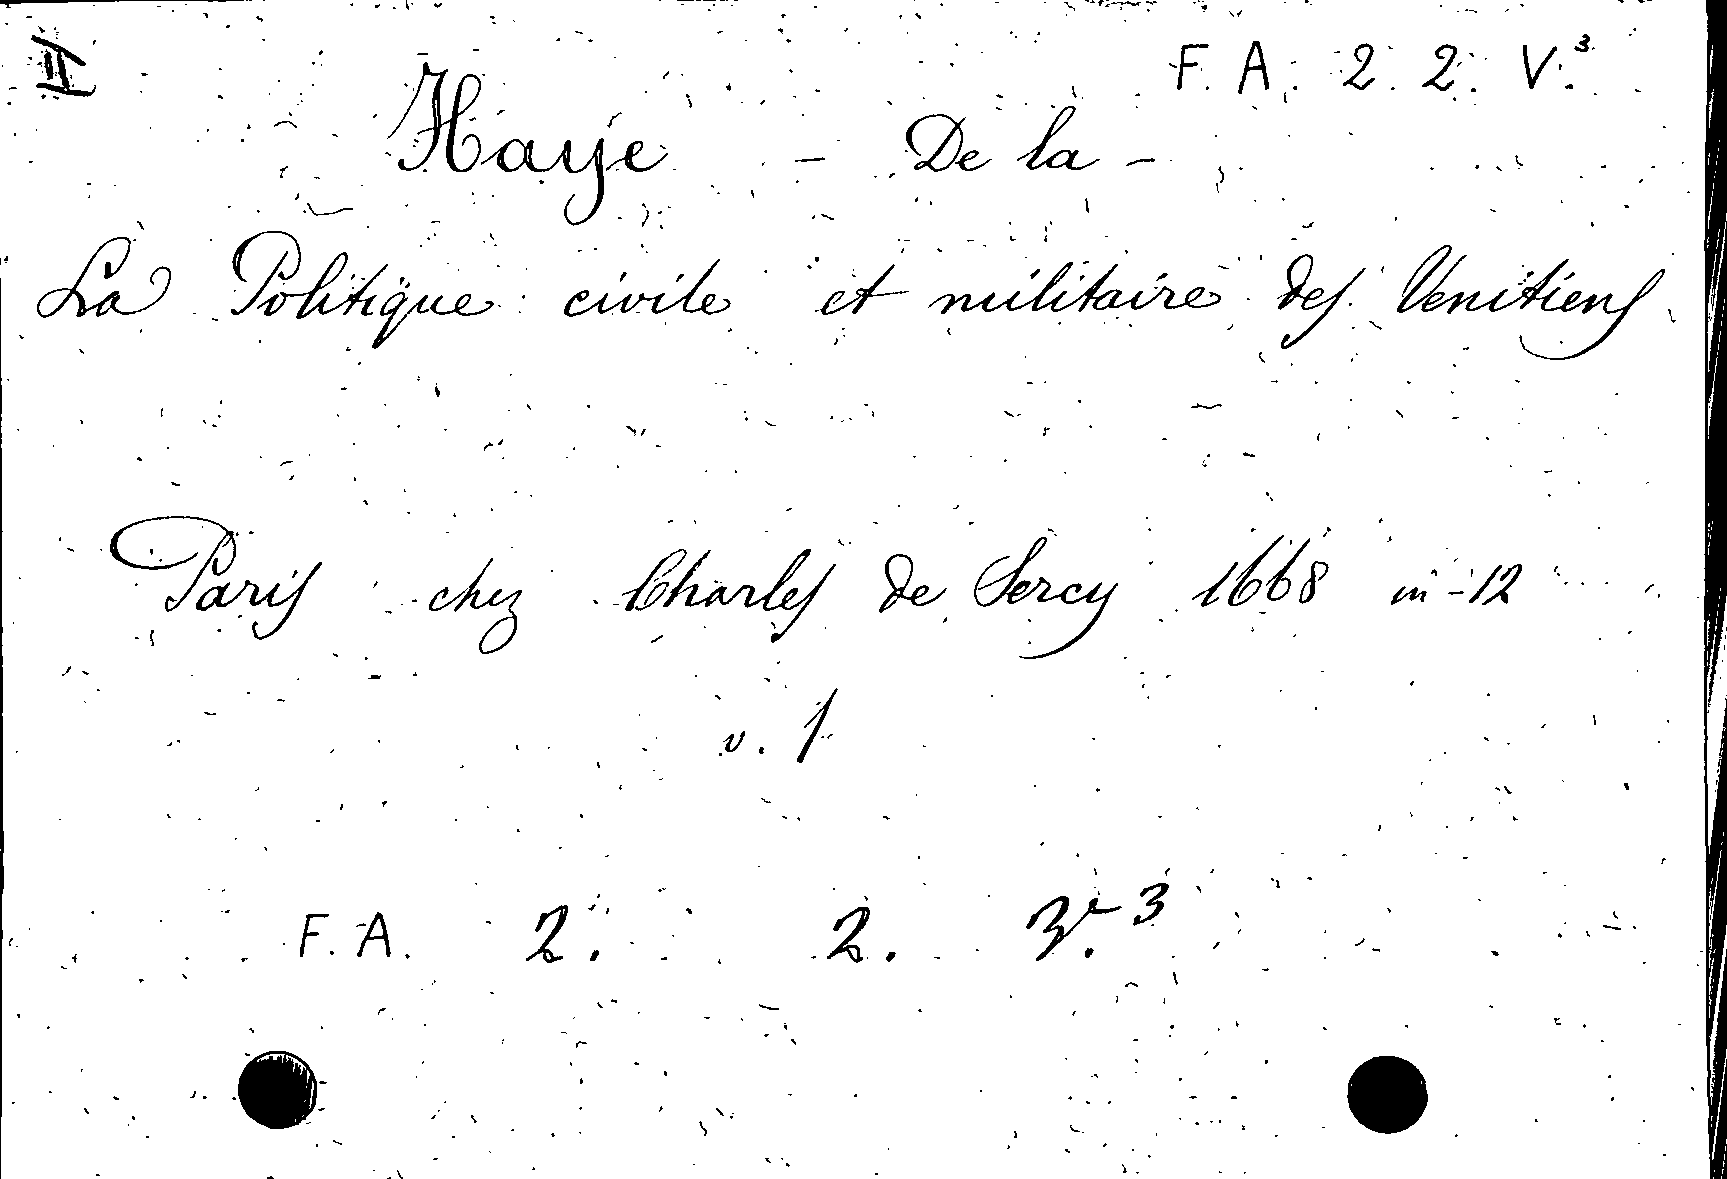 II
F. A. 2. 2. V.³
Haye - De la -
La Politique civile et militaire des Venitiens
Paris chez Charles de Sercy 1668 in-12
v. 1
F. A. 2. 2.